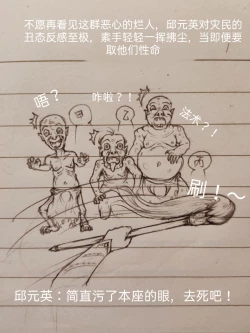 不愿再看见这群恶心的烂人,邱元英对灾民的
丑态反感至极,素手轻轻一挥拂尘,当即便要
取他们性命
唔?
咋啦?!
法术?!
甲
乙
丙
刷!~
邱元英:简直污了本座的眼,去死吧!